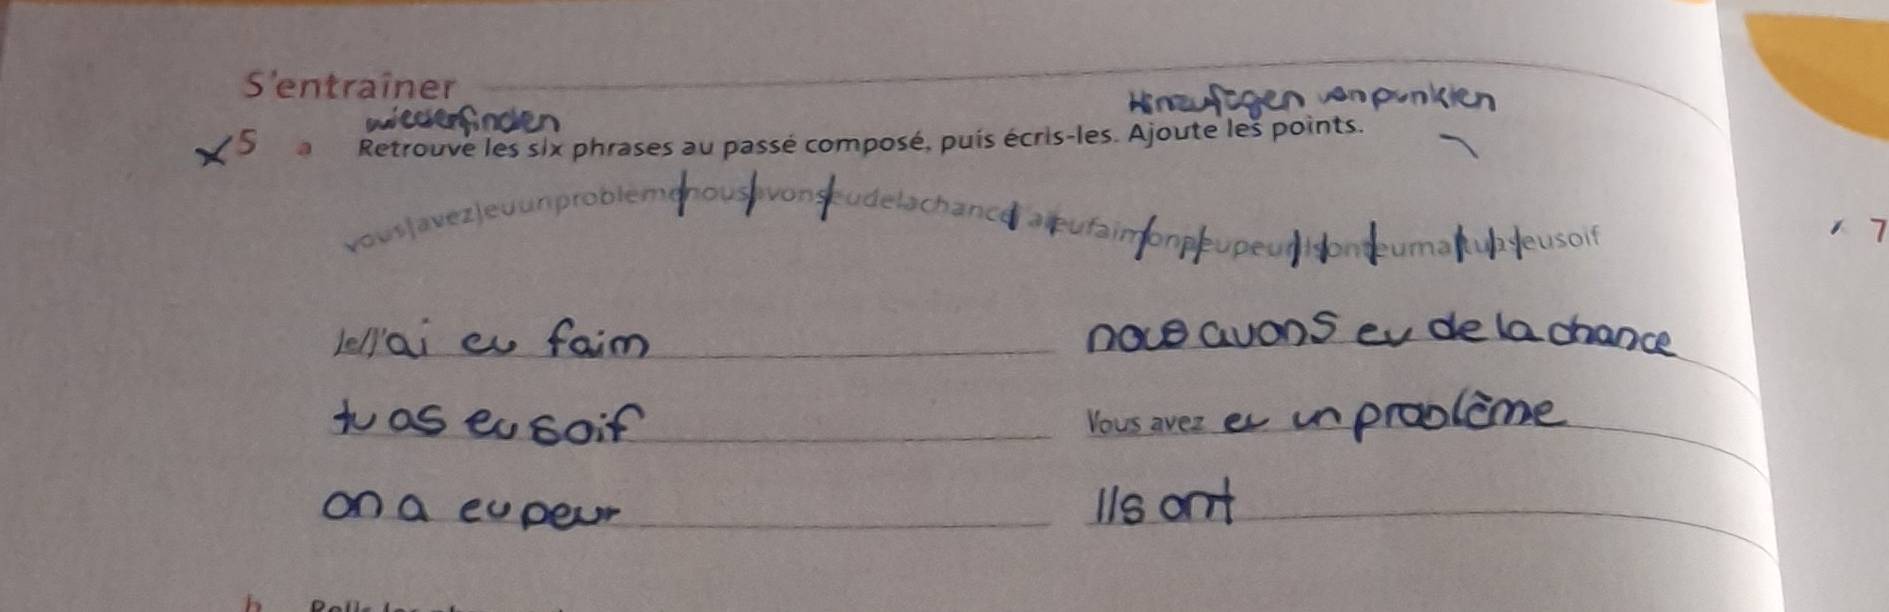 S'entraîner
wiederfinden
Hinzufügen von punkten
5 a Retrouve les six phrases au passé composé, puis écris-les. Ajoute les points.
vous|avez|euunproblèmenousavonseudelachancej'aieufaimonaeupeurilsonteumaltuaseusoif
7
J'ai eu faim
nous avons eu de la chance
tu as eu soif
Vous avez eu un problème
on a eu peur
Ils ont
b